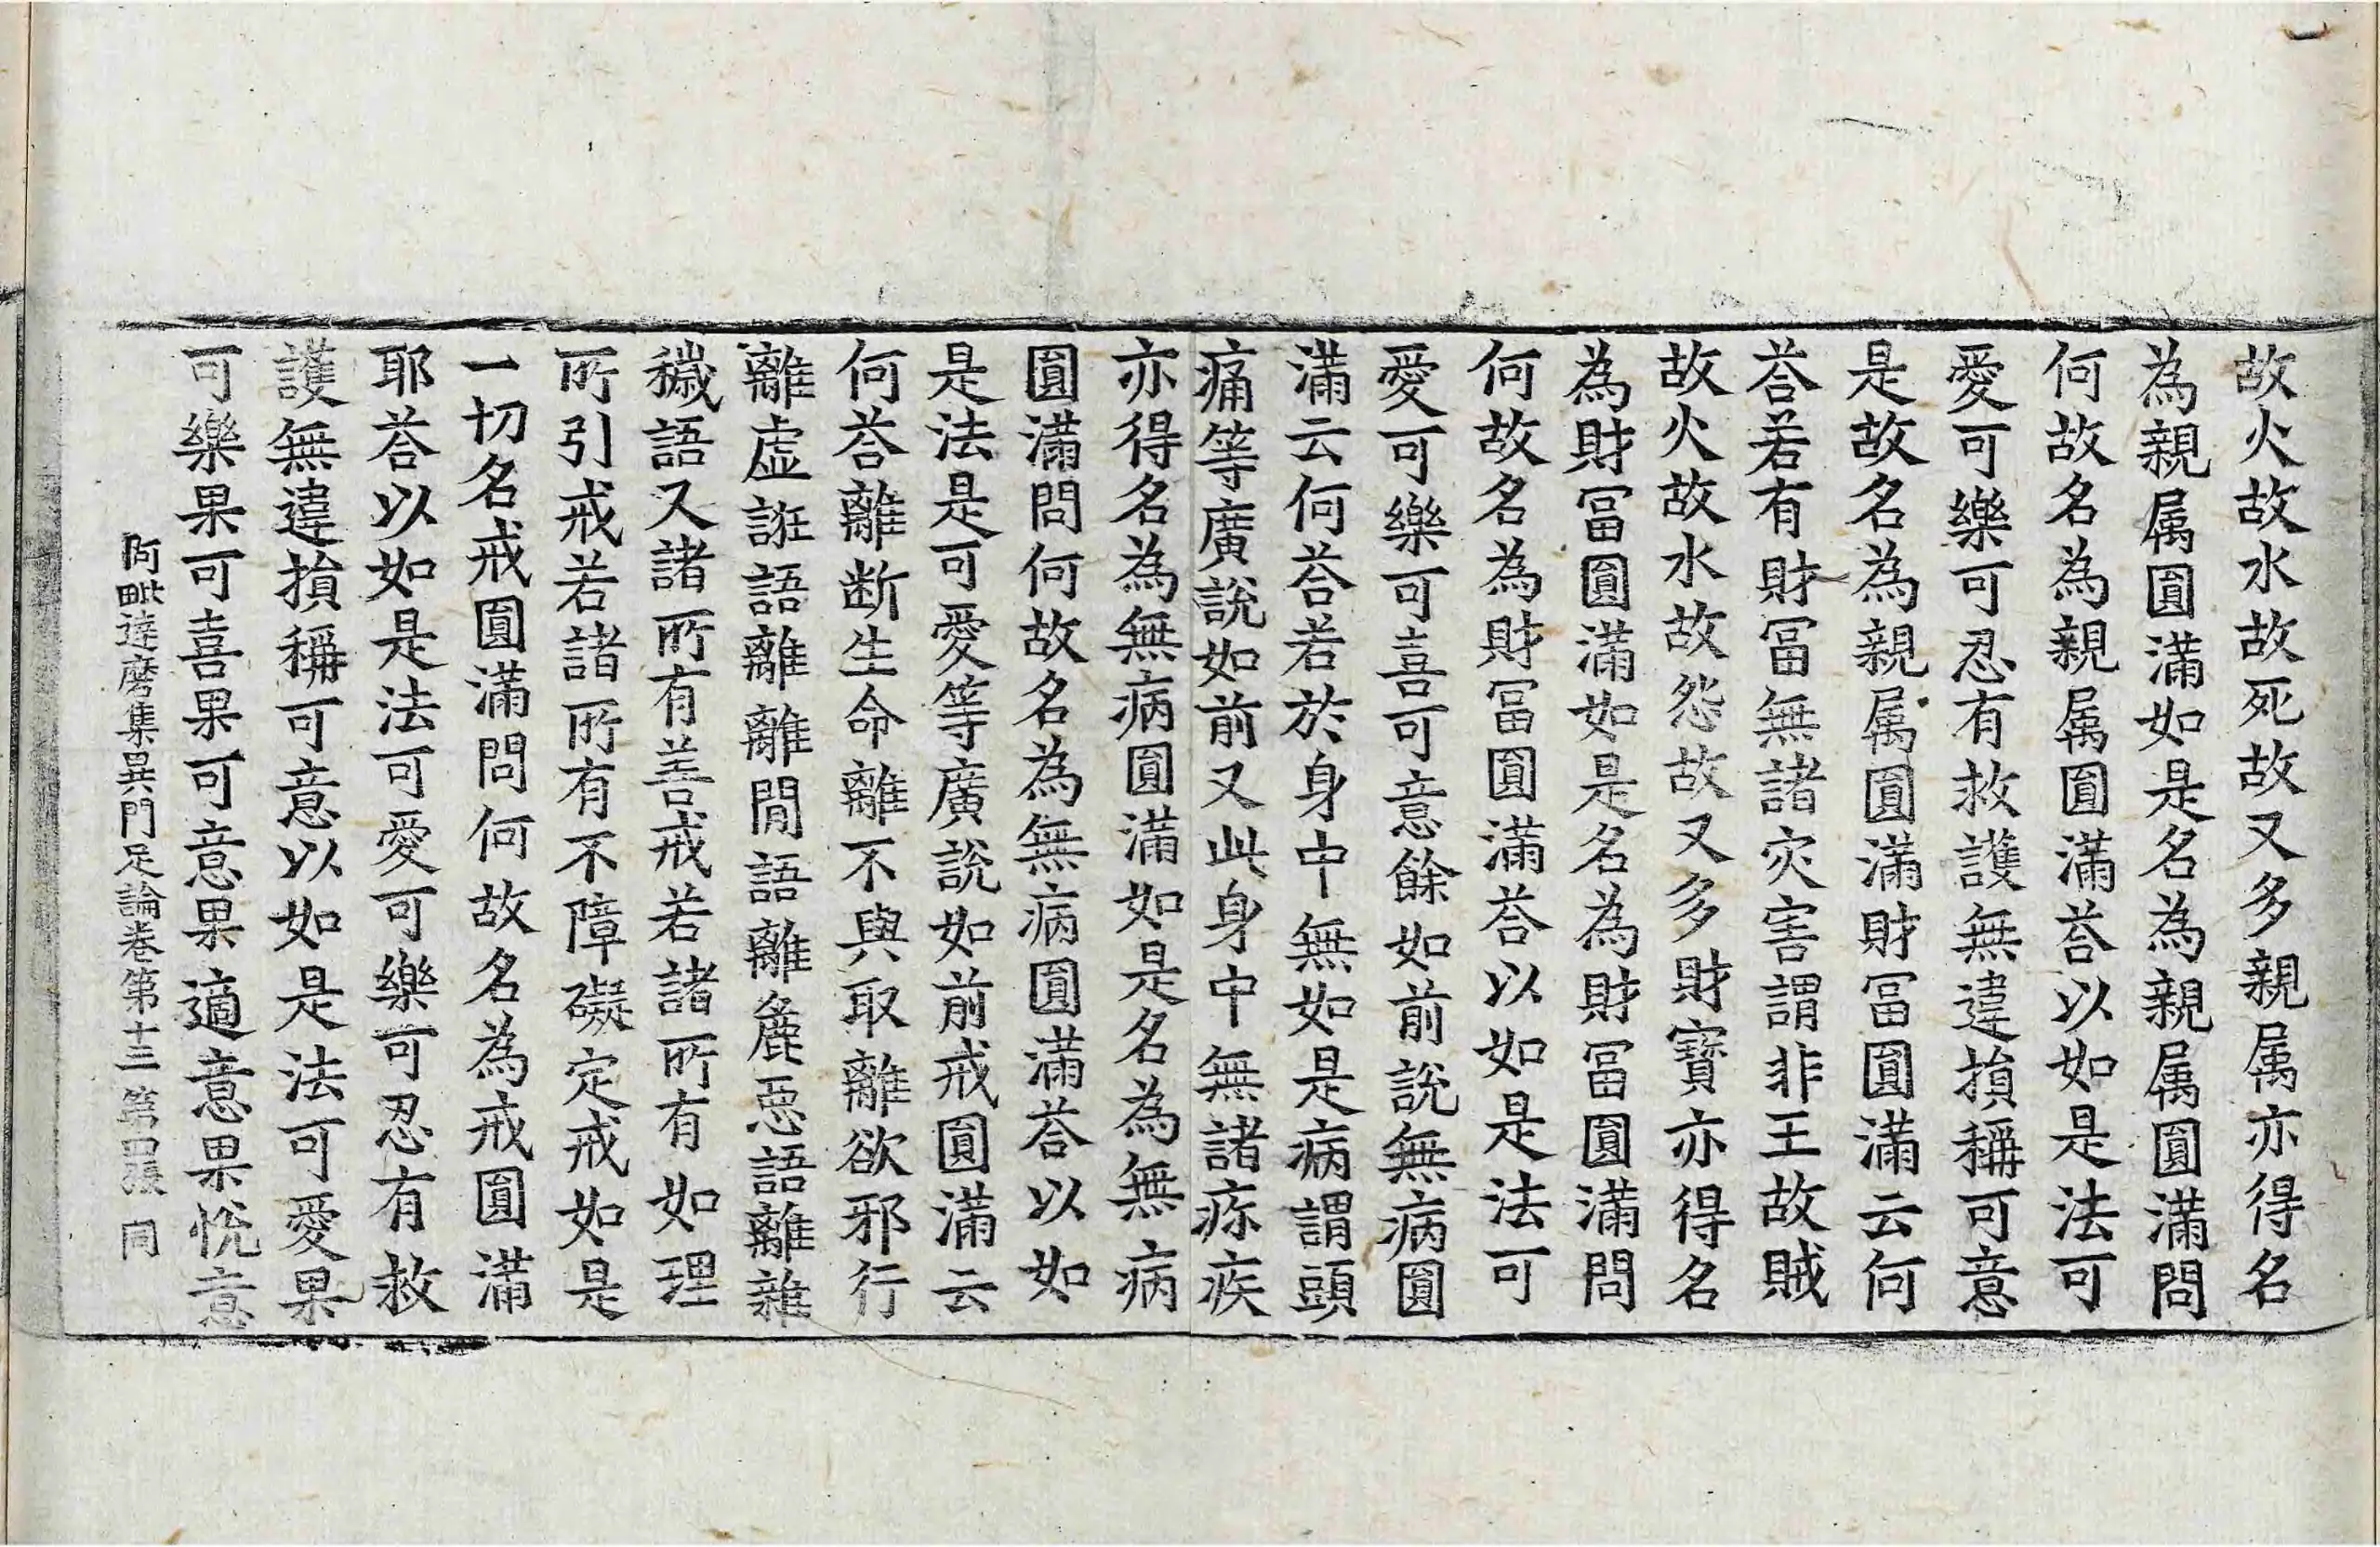 故火故水故死故又多親属亦得名
為親属圎滿如是名為親属圎滿問
何故名為親属圎滿荅以如是法可
愛可樂可忍有救護無違損稱可意
是故名為親属圎滿財冨圎滿云何
荅若有財冨無諸灾害謂非王故賊
故火故水故怨故又多財寶亦得名
為財冨圎滿如是名為財冨圎滿問
何故名為財冨圎滿荅以如是法可
愛可樂可喜可意餘如前說無病圎
滿云何荅若於身中無如是病謂頭
痛等廣說如前又此身中無諸疹疾
亦得名為無病圎滿如是名為無病
圎滿問何故名為無病圎滿荅以如
是法是可愛等廣說如前戒圎滿云
何荅離断生命離不與取離欲邪行
離虛誑語離離間語離麁惡語離雜
穢語又諸所有善戒若諸所有如理
所引戒若諸所有不障礙定戒如是
一切名戒圎滿問何故名為戒圎滿
耶荅以如是法可愛可樂可忍有救
護無違損稱可意以如是法可愛果
可樂果可喜果可意果適意果悅意
阿毗達磨集異門足論卷第十三 第四張 同